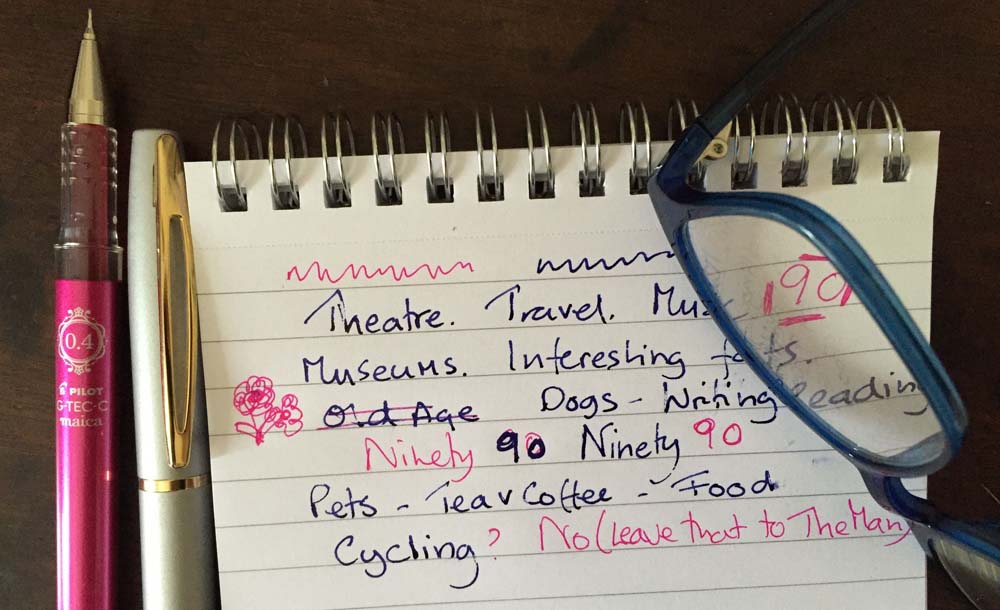 0.4
PILOT
G-TEC-C
maica
90
Theatre. Travel. Mus
Museums. Interesting facts.
Old Age Dogs - Writing Reading
Ninety 90 Ninety 90
Pets - Tea v Coffee - Food
Cycling? No (leave that to The Man)